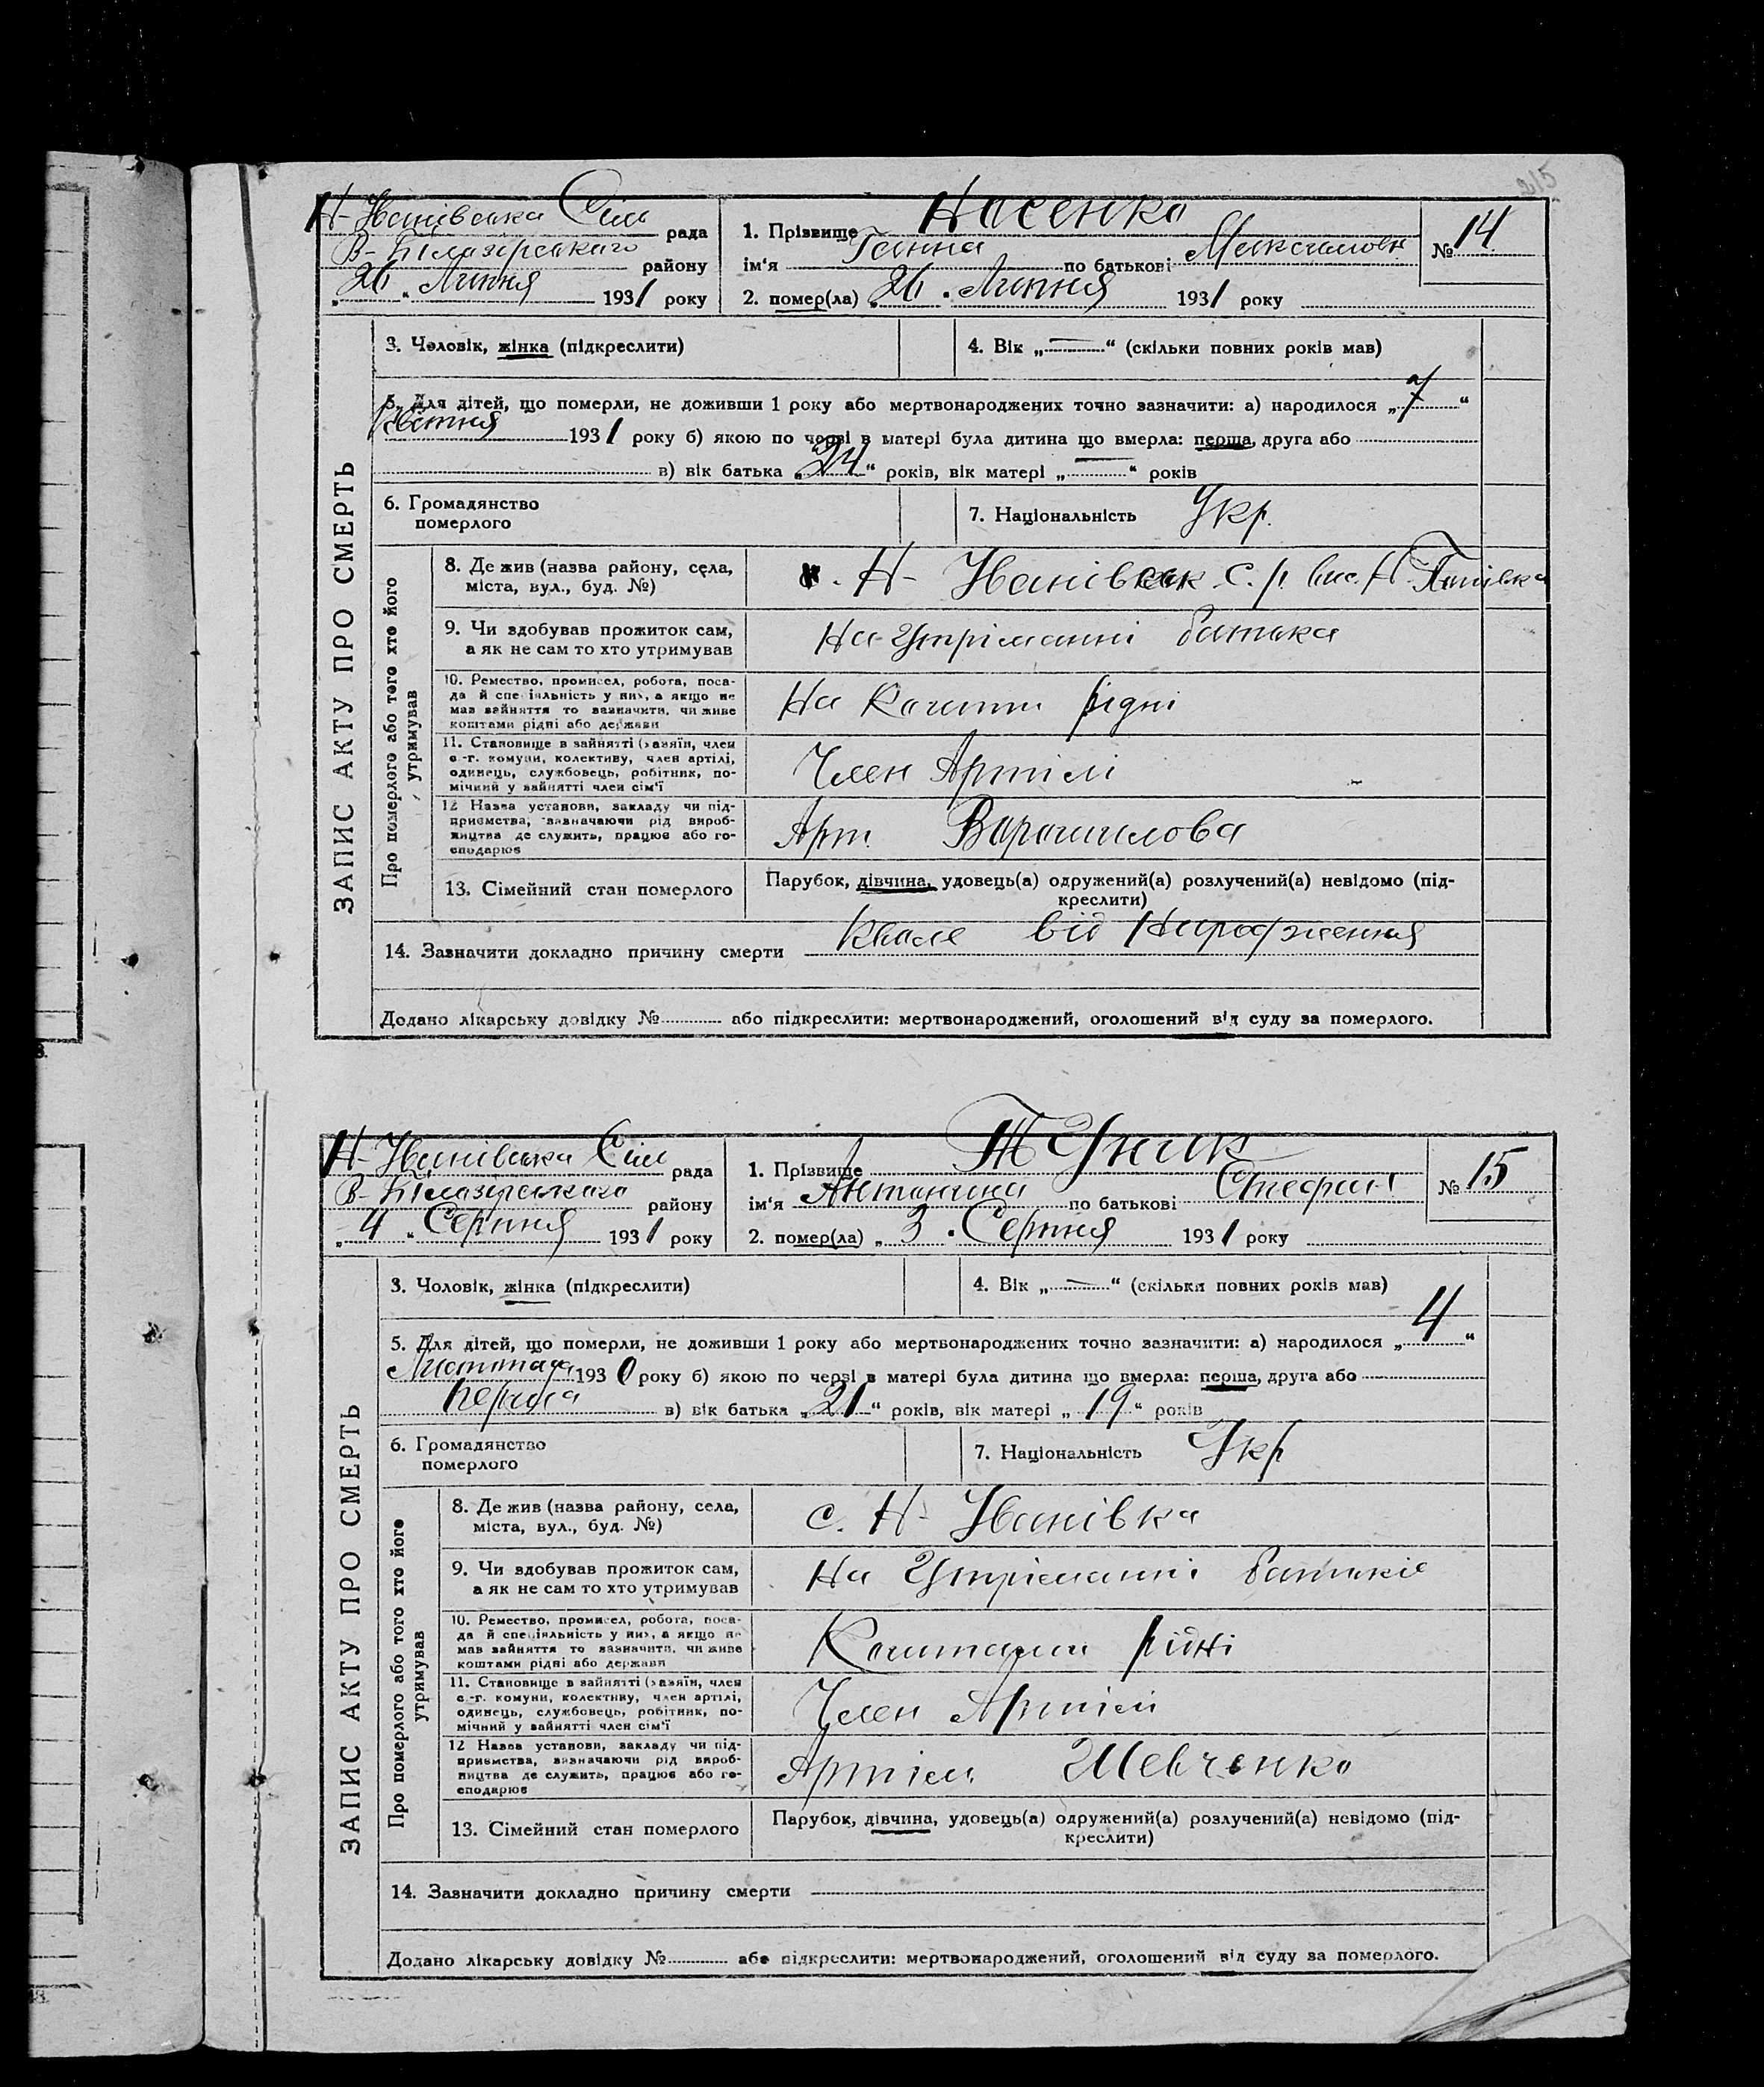 215
Н-Іванівська Сіль рада
В-Білазірського району
„26“ Липня 1931 року
1. Прізвище Носенко
ім'я Ганна по батькові Максимовн
2. помер(ла) „26“ Липня 1931 року
№ 14
ЗАПИС АКТУ ПРО СМЕРТЬ
3. Чоловік, жінка (підкреслити)
4. Вік „—“ (скільки повних років мав)
5. Для дітей, що померли, не доживши 1 року або мертвонароджених точно зазначити: а) народилося „7“
Квітня 1931 року б) якою по черзі в матері була дитина що вмерла: перша, друга або
в) вік батька „24“ років, вік матері „ “ років
6. Громадянство
померлого
7. Національність Укр.
Про померлого або того хто його
утримував
8. Де жив (назва району, села,
міста, вул., буд. №)
Н-Іванівськ с. р. вис. Н.
9. Чи здобував прожиток сам,
а як не сам то хто утримував
На Утріманні батька
10. Ремество, промисел, робота, поса-
да й спеціяльність у них, а якщо не
мав зайняття то зазначити, чи живе
коштами рідні або держави
На Кошти рідні
11. Становище в зайнятті (хазяїн, член
с.-г. комуни, колективу, член артілі,
одинець, службовець, робітник, по-
мічний у зайнятті член сім'ї
Член Артілі
12 Назва установи, закладу чи під-
приємства, зазначаючи рід вироб-
ництва де служить, працює або го-
сподарює
Арт. Ворошилова
13. Сімейний стан померлого
Парубок, дівчина, удовець(а) одружений(а) розлучений(а) невідомо (під-
креслити)
14. Зазначити докладно причину смерти Кволе від Народження
Додано лікарську довідку № або підкреслити: мертвонароджений, оголошений від суду за померлого.
Н-Іванівська Сіль рада
В-Білазірського району
„4“ Серпня 1931 року
1. Прізвище
ім'я Антонина по батькові Стефан
2. помер(ла) „3“ Серпня 1931 року
№ 15
ЗАПИС АКТУ ПРО СМЕРТЬ
3. Чоловік, жінка (підкреслити)
4. Вік „—“ (скільки повних років мав)
5. Для дітей, що померли, не доживши 1 року або мертвонароджених точно зазначити: а) народилося „4“
Листопада 1930 року б) якою по черзі в матері була дитина що вмерла: перша, друга або
перша в) вік батька „21“ років, вік матері „19“ років
6. Громадянство
померлого
7. Національність Укр
Про померлого або того хто його
утримував
8. Де жив (назва району, села,
міста, вул., буд. №)
с. Н-Іванівка
9. Чи здобував прожиток сам,
а як не сам то хто утримував
На Утріманні батьків
10. Ремество, промисел, робота, поса-
да й спеціяльність у них, а якщо не
мав зайняття то зазначити, чи живе
коштами рідні або держави
Коштами рідні
11. Становище в зайнятті (хазяїн, член
с.-г. комуни, колективу, член артілі,
одинець, службовець, робітник, по-
мічний у зайнятті член сім'ї
Член Артілі
12 Назва установи, закладу чи під-
приємства, зазначаючи рід вироб-
ництва де служить, працює або го-
сподарює
Артіль Шевченко
13. Сімейний стан померлого
Парубок, дівчина, удовець(а) одружений(а) розлучений(а) невідомо (під-
креслити)
14. Зазначити докладно причину смерти
Додано лікарську довідку № або підкреслити: мертвонароджений, оголошений від суду за померлого.